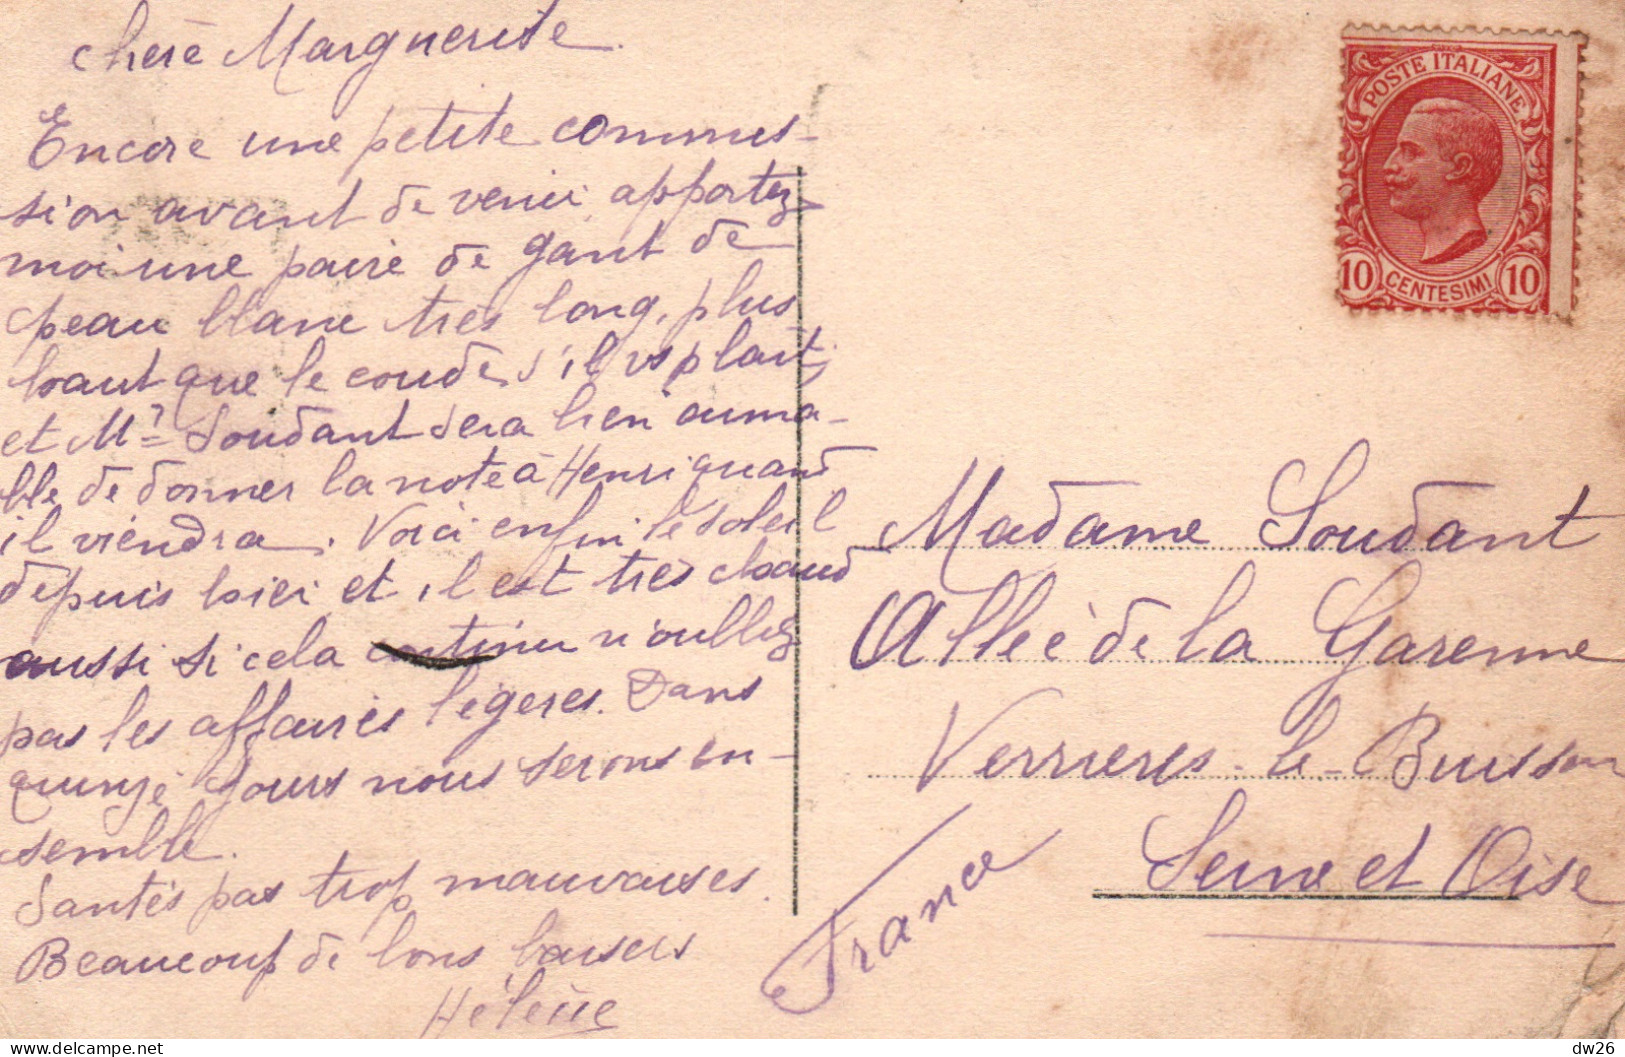 chère Marguerite.
Encore une petite commis-
sion avant de venir apportez
moi une paire de gant de
peau blanc très long, plus
haut que le coude s'il vs plait,
et Mr Soudant sera bien aima-
ble de donner la note à Henri quand
il viendra. Voici enfin le soleil
depuis hier et il est très chaud
aussi si cela continu n'oubliez
pas les affaires légères. Dans
quinze jours nous serons en-
semble.
Santés pas trop mauvaises.
Beaucoup de bons baisers
Hélène
POSTE ITALIANE
10 CENTESIMI 10
Madame Soudant
Allée de la Garenne
Verrieres-le-Buisson
Seine et Oise
France
dw26